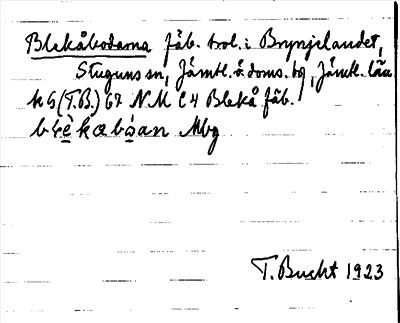 Blekåbodarna fäb. trol. i Brynjelandet,
Stuguns sn, Jämtl. ö. doms. tg, Jämtl. län
k 5 (T.B.) 67 N.M. C 4 Blekå fäb.
Mbg
T. Bucht 1923